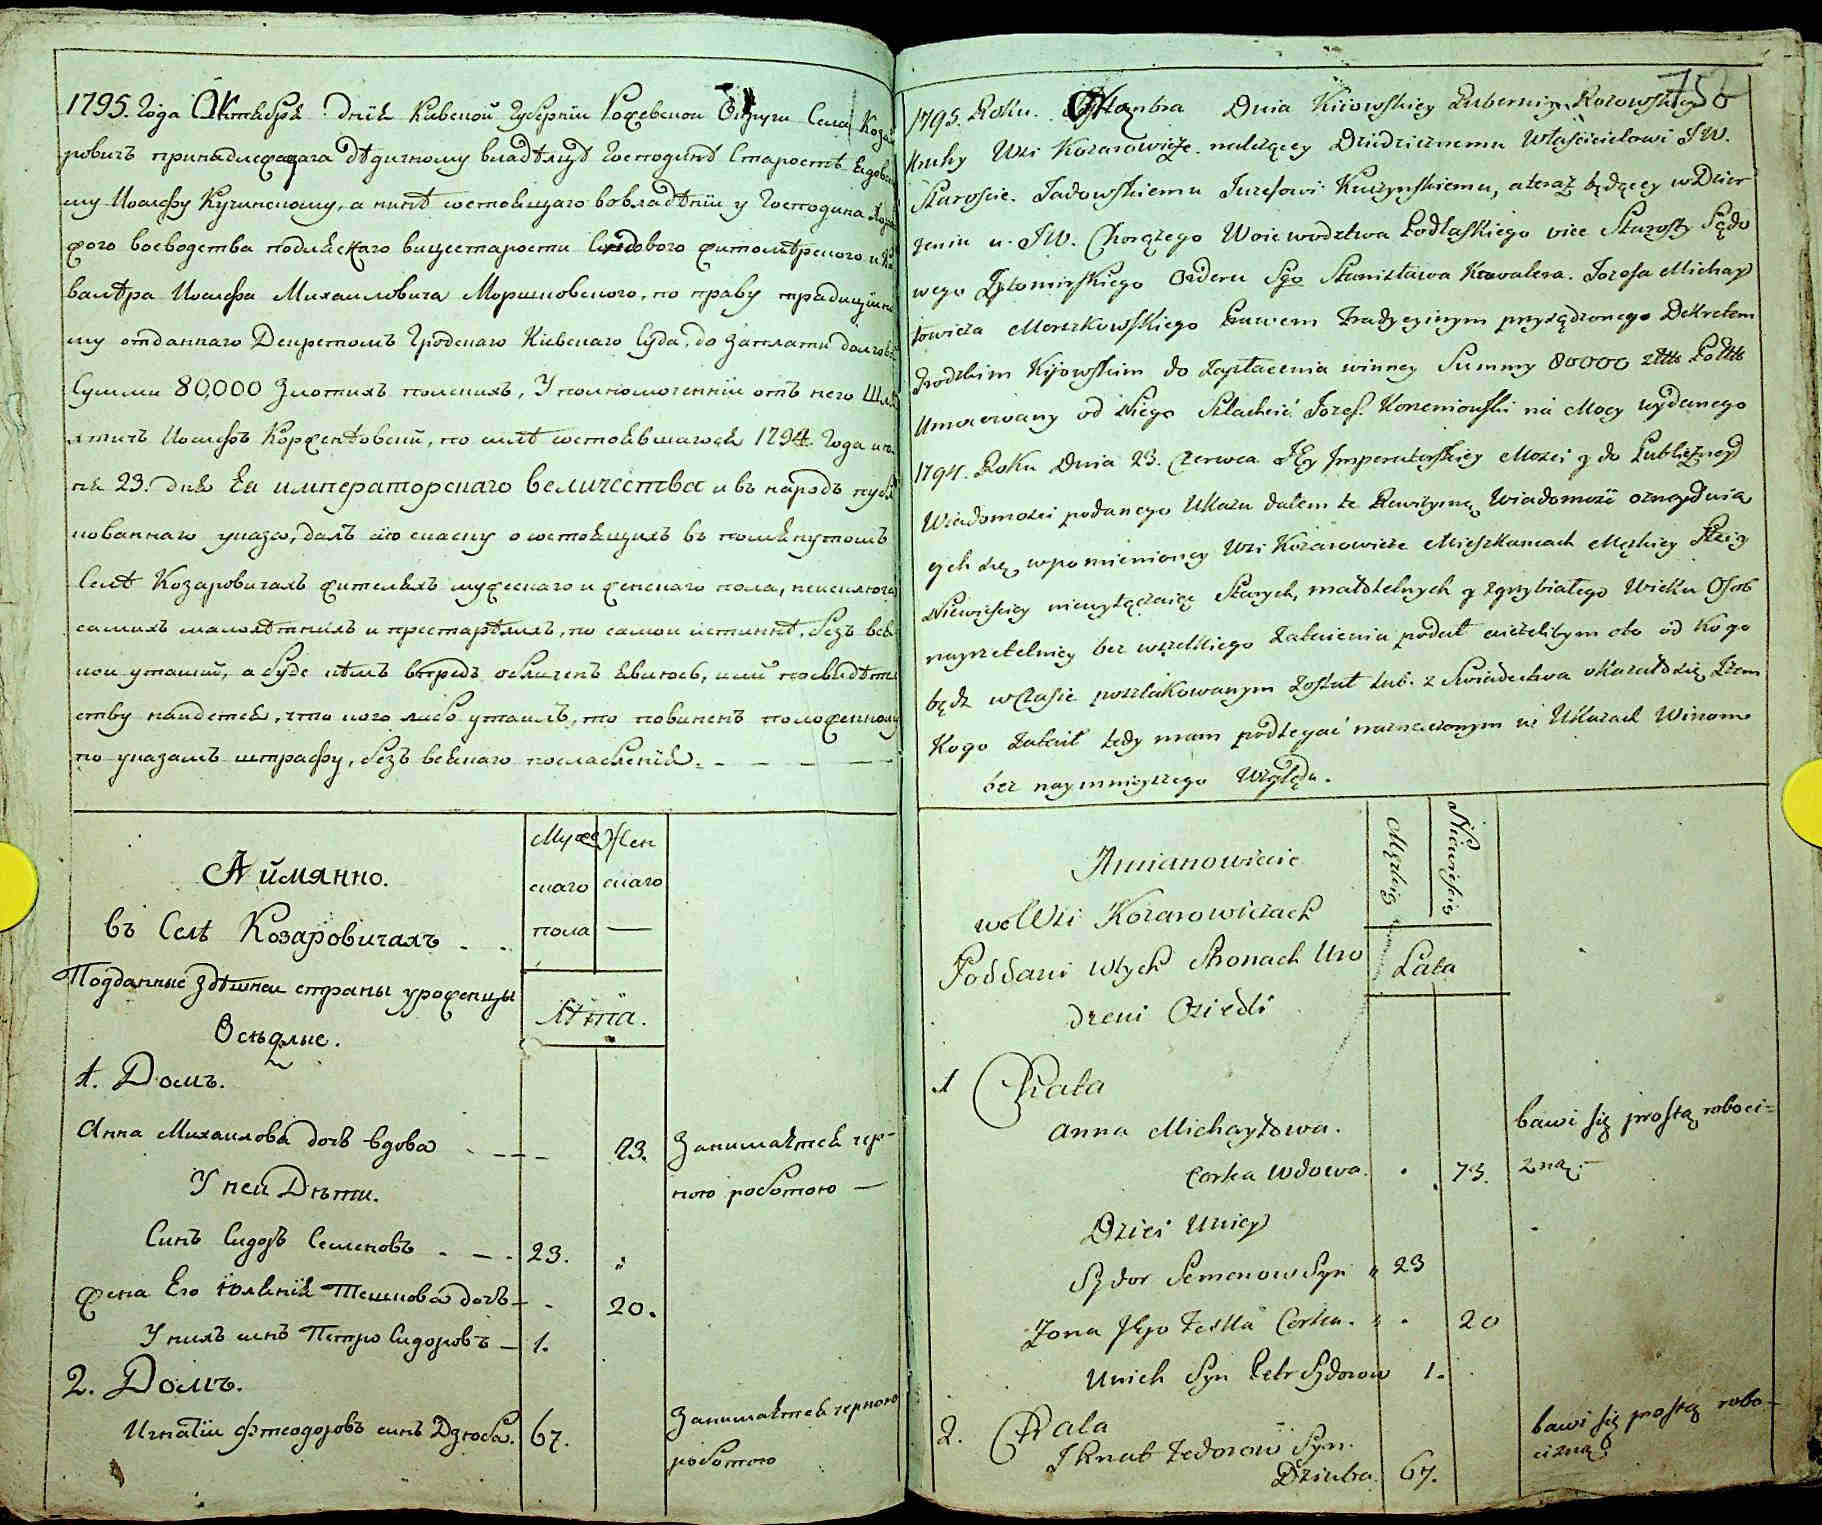 1795. Года Октября дня Киевской Губернии Рожевской Округи Села Коза
ровичъ принадлежащаго дѣдичному владѣлцѣ Господинѣ Старостѣ
му Иосифу Кучинскому, а нинѣ состоящаго во владѣнии у Господина
жого воеводства подляскаго вицестарости Судового житомѣрского и Ка
валѣра Иосифа Михаиловича Моршковского, по праву традицийно
му отданнаго Декретомъ Гродского Киевскаго Суда, до заплати долгов
Сумми 80,000 Злотихъ полскихъ, Уполномоченний отъ него Шля
хтичъ Иосифъ Корженѣовский, по силѣ состоявшагося 1794. Года июн
ня 23. дня Ея императорскаго величества и въ народъ публи
кованнаго указа, далъ сию сказку о состоящихъ въ помянутомъ
Селѣ Козаровичахъ жителяхъ мужескаго и женскаго пола, неисключая
самихъ малолѣтнихъ и престарѣлихъ, по самои истиннѣ, безъ вся
кои утайки, а буде кѣмъ впредь обличенъ явлюсь, или по свидѣтел
ству найдется, что кого либо утаилъ, то повиненъ положенному
по указамъ штрафу, безъ всякаго послабления. — — — —
А имянно.
Муже Жен
скаго скаго
пола —
въ Селѣ Козаровичахъ . .
Подданные здѣшнеи страны уроженцы
Осѣдлые.
Лѣта.
1. Домъ.
Анна Михаилова дочь вдова . — — 23. Занимается чер-
ною роботою —
У ней Дѣти.
Синъ Сидоръ Семеновъ . — . 23. "
жена Его Юлиния Тешкова дочь — - 20.
У нихъ синъ Петро Сидоровъ — 1.
2. Домъ.
Игнатий Фтеодоровъ синъ Дзюба. 67. Занимается черною
роботою
1795. Roku. Oktanbra Dnia Kiiowskiey Guberniy Rozowskiey
Wsi Kozarowicze. należącey Dziedzicznemu Właścicielowi JW.
Staroście. Jadowskiemu Juzefowi Kuczynskiemu, a teraz będącey w Dzier
zeniu u. JW. Chorążego Woiewodztwa Podlaskiego vice Starosty Sądo
wego Żytomirskiego Orderu Sgo Stanisława Kawalera. Jozefa Michay
łowicza Morszkowskiego Prawem Tradycyinym przysądzonego Dekretem
Grodzkim Kijowskim do zapłacenia winney Summy 80000
Umocowany od Niego Szlachcic Jozef. Korzeniowski na Mocy wydanego
1794. Roku Dnia 23. Czerwca JEy Imperatorskiey Mości y do Publiczney
Wiadomości podanego Ukazu dałem te Rewizyiną Wiadomość o znayduią
cych się wpomienioney Wsi Kozarowicze Mieszkancach Męskiey Płci y
Niewieściey niewyłączaiąc Starych, małoletnych y zgrzybiałego Wieku Osob
nayrzetelniey bez wszelkiego zataienia podał ieżelibym oto od Kogo
bądz w Czasie poszlakowanym został lub. z Swiadectwa okazało się żem
Kogo zataił tedy mam podlegać naznaczonym w Ukazach Winom
bez naymnieyszego Względu.
Jmianowicie
Męskiey
Niewieściey
we Wsi Kozarowiczach
Poddani w tych Stronach Uro
dzeni Osiedli
Lata
1 Chata
Anna Michayłowa.
bawi się prostą roboci=
Corka Wdowa. . . 73. zną.—
Dzieci Uniey
Sydor Semenow Syn " 23
Zona Jego Teszka Corka. " . 20
Unich Syn Petr Sydorow 1.
2. Chata
Jhnat Fedorow Syn.
Dziuba. 67.
bawi się prostą robo-
cizną